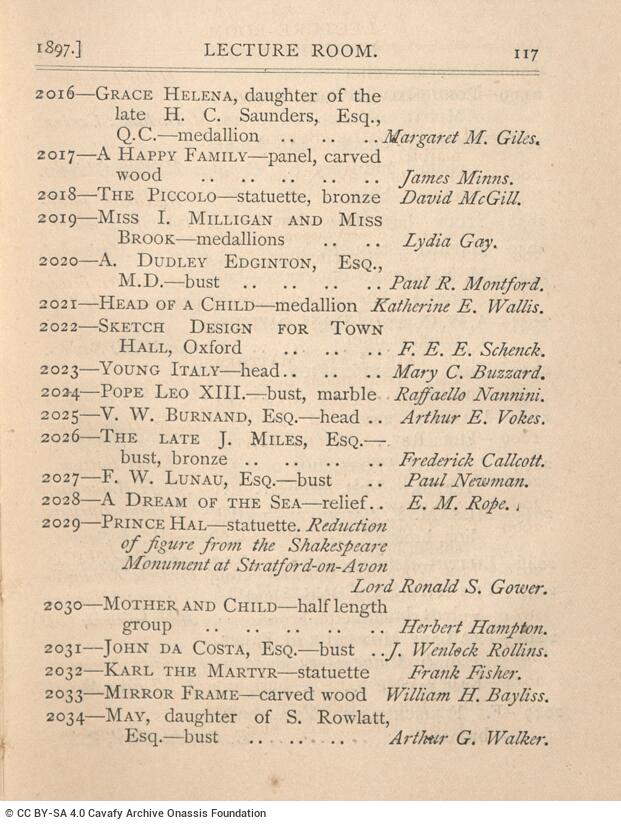 1897.] LECTURE ROOM. 117
2016—GRACE HELENA, daughter of the
late H. C. Saunders, Esq.,
Q.C.—medallion .. .. .. Margaret M. Giles.
2017—A HAPPY FAMILY—panel, carved
wood .. .. .. .. .. James Minns.
2018—THE PICCOLO—statuette, bronze David McGill.
2019—MISS I. MILLIGAN AND MISS
BROOK—medallions .. .. Lydia Gay.
2020—A. DUDLEY EDGINTON, ESQ.,
M.D.—bust .. .. .. .. Paul R. Montford.
2021—HEAD OF A CHILD—medallion Katherine E. Wallis.
2022—SKETCH DESIGN FOR TOWN
HALL, Oxford .. .. .. F. E. E. Schenck.
2023—YOUNG ITALY—head .. .. .. Mary C. Buzzard.
2024—POPE LEO XIII.—bust, marble Raffaello Nannini.
2025—V. W. BURNAND, ESQ.—head .. Arthur E. Vokes.
2026—THE LATE J. MILES, ESQ.—
bust, bronze .. .. .. .. Frederick Callcott.
2027—F. W. LUNAU, ESQ.—bust .. Paul Newman.
2028—A DREAM OF THE SEA—relief .. E. M. Rope.
2029—PRINCE HAL—statuette. Reduction
of figure from the Shakespeare
Monument at Stratford-on-Avon
Lord Ronald S. Gower.
2030—MOTHER AND CHILD—half length
group .. .. .. .. .. Herbert Hampton.
2031—JOHN DA COSTA, ESQ.—bust .. J. Wenlock Rollins.
2032—KARL THE MARTYR—statuette Frank Fisher.
2033—MIRROR FRAME—carved wood William H. Bayliss.
2034—MAY, daughter of S. Rowlatt,
Esq.—bust .. .. .. .. Arthur G. Walker.
© CC BY-SA 4.0 Cavafy Archive Onassis Foundation